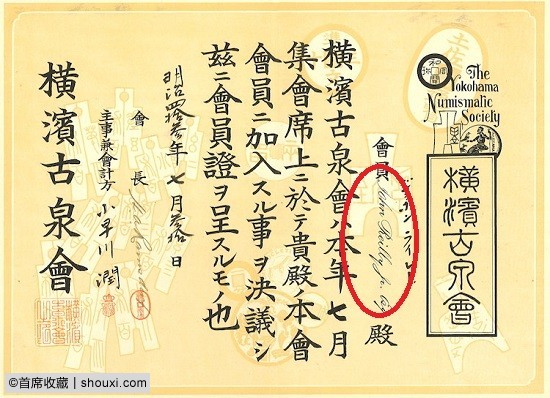 The
Yokohama
Numismatic
Society
横濱古泉會
會員 John Reilly Jr. Esq 殿
横濱古泉會ハ本年七月
集會席上ニ於テ貴殿ノ本會
會員ニ加入スル事ヲ決議シ
茲ニ會員證ヲ呈スルモノ也
明治四拾叁年七月叁拾日
會長
主事兼會計方 小早川潤
横濱古泉會
©首席收藏 | shouxi.com